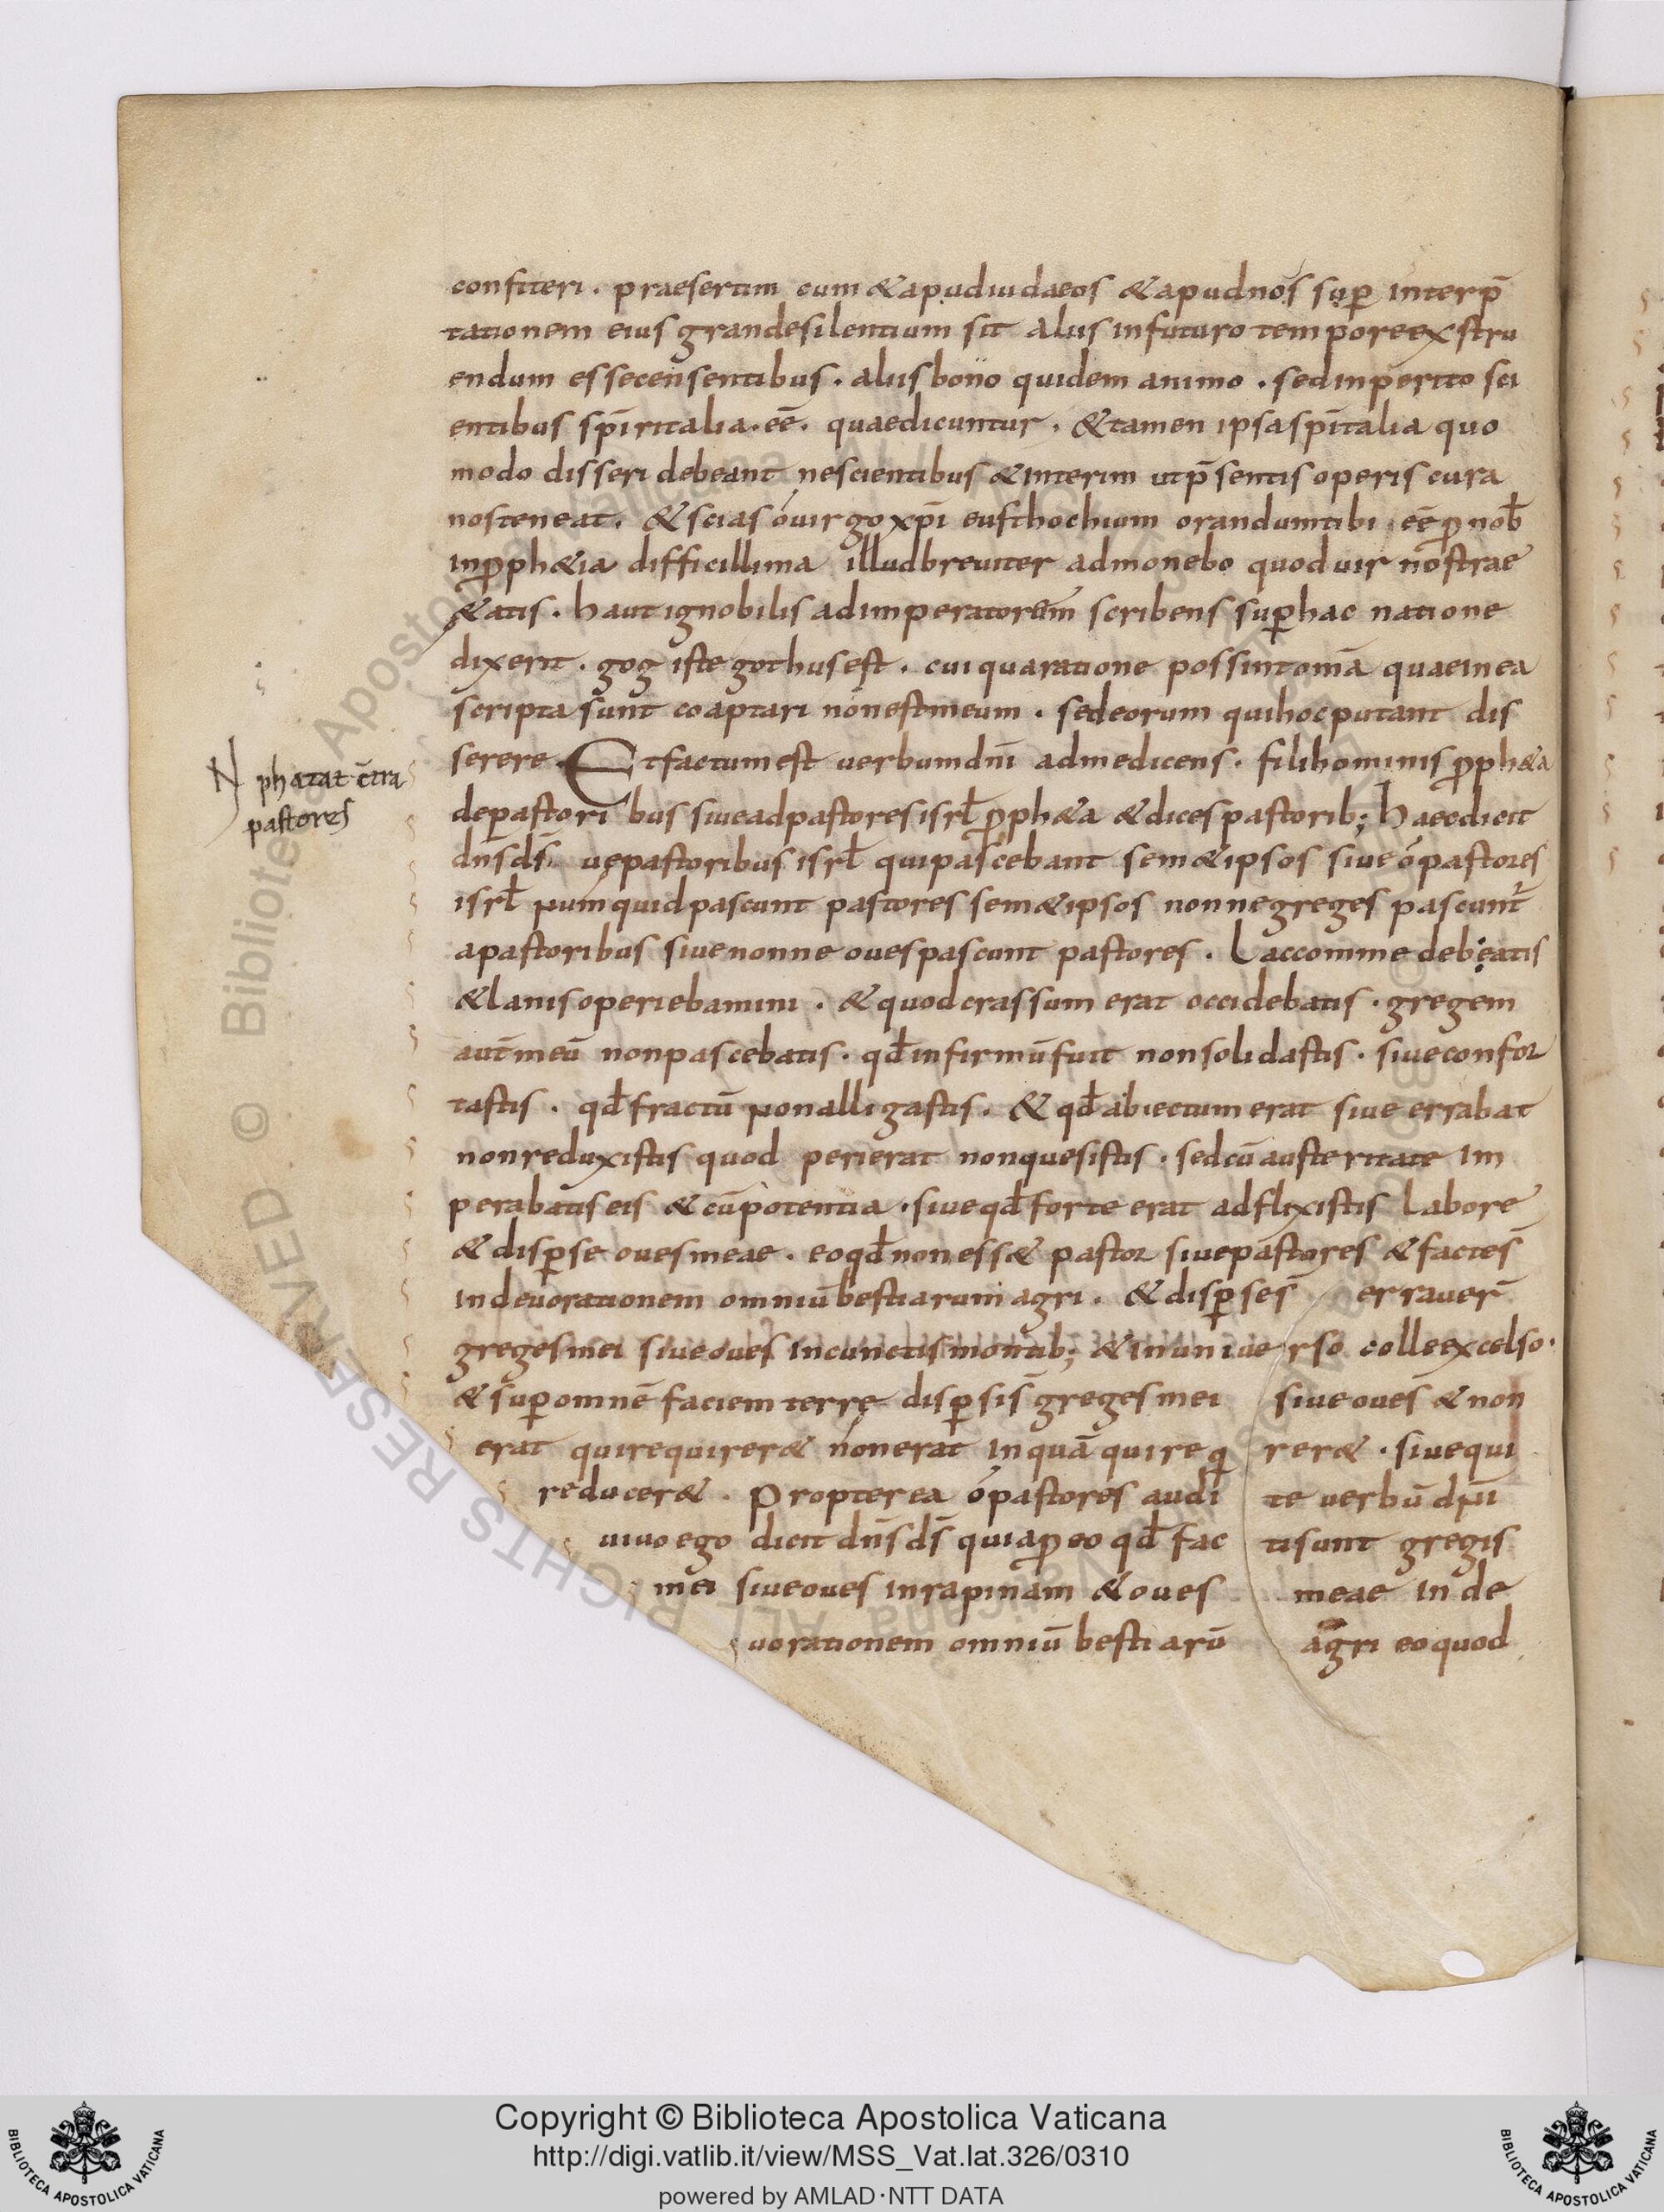 confiteri. praesertim cum & apud iudaeos & apud nos sup̱ interp̄
tationem eius grande silentium sit aliis in futuro tempore exstru
endum esse censentibus. aliis bono quidem animo. sed inperito sci
entibus sp̄iritalia. eē. quae dicuntur. & tamen ipsa sp̄italia quo
modo disseri debeant nescientibus & interim ut p̄sentis operis cura
nos teneat. & scias ó uirgo xp̄i eusthochium orandum tibi eē ꝓ nob̄
in ꝓph&ia difficillima illud breuiter admonebo quod uir nostrae
&atis. haut ignobilis ad imperatorem scribens sup̱ hac natione
dixerit. gog iste gothus est. cui qua ratione possint om̄a quae in ea
scripta sunt coaptari non est meum. sed eorum qui hoc putant dis
serere Et factum est uerbum dn̄i ad me dicens. fili hominis ꝓph&a
de pastoribus siue ad pastores isrl̄ ꝓph&a & dices pastorib; Haec dicit
dn̄s d̄s uę pastoribus isrl̄ qui pascebant sem&ipsos siue ó pastores
isrl̄ numquid pascunt pastores sem&ipsos nonne greges pascunt᷑
a pastoribus siue nonne oues pascunt pastores. Lac comme debẹatis
& lanis operiebamini. & quod crassum erat occidebatis. gregem
aut̄ meū non pascebatis. qd̄ infirmū fuit non solidastis. siue confor
tastis. qd̄ fractū non alligastis. & qd̄ abiectum erat siue errabat
non reduxistis quod perierat non quesistis. sed cū austeritate im
perabatis eis & cū potentia. siue qd̄ forte erat adflixistis labore
& disp̱se oues meae. eo qd̄ non ess& pastor siue pastores & factes̄
in deuorationem omniū bestiarum agri. & disp̱ses̄ errauer̄
greges mei siue oues in cunctis montib; & in uniuerso colle excelso.
& sup̱ omnē faciem terrę disp̱sis̄ greges mei siue oues̄ & non
erat qui requirer& non erat inquā qui reqrer& . siue qui
reducer& . Propterea ó pastores audite uerbū dn̄i
uiuo ego dicit dn̄s d̄s quia ꝓ eo qd̄ facti sunt gregis
mei siue oues in rapinam & oues meae in de
uorationem omniū bestiarū agri eo quod
N
phatat ct̄ra
pastores
© Biblioteca Apostolica Vaticana ALL RIGHTS RESERVED
Copyright © Biblioteca Apostolica Vaticana
http://digi.vatlib.it/view/MSS_Vat.lat.326/0310
powered by AMLAD·NTT DATA
BIBLIOTECA APOSTOLICA VATICANA
BIBLIOTECA APOSTOLICA VATICANA